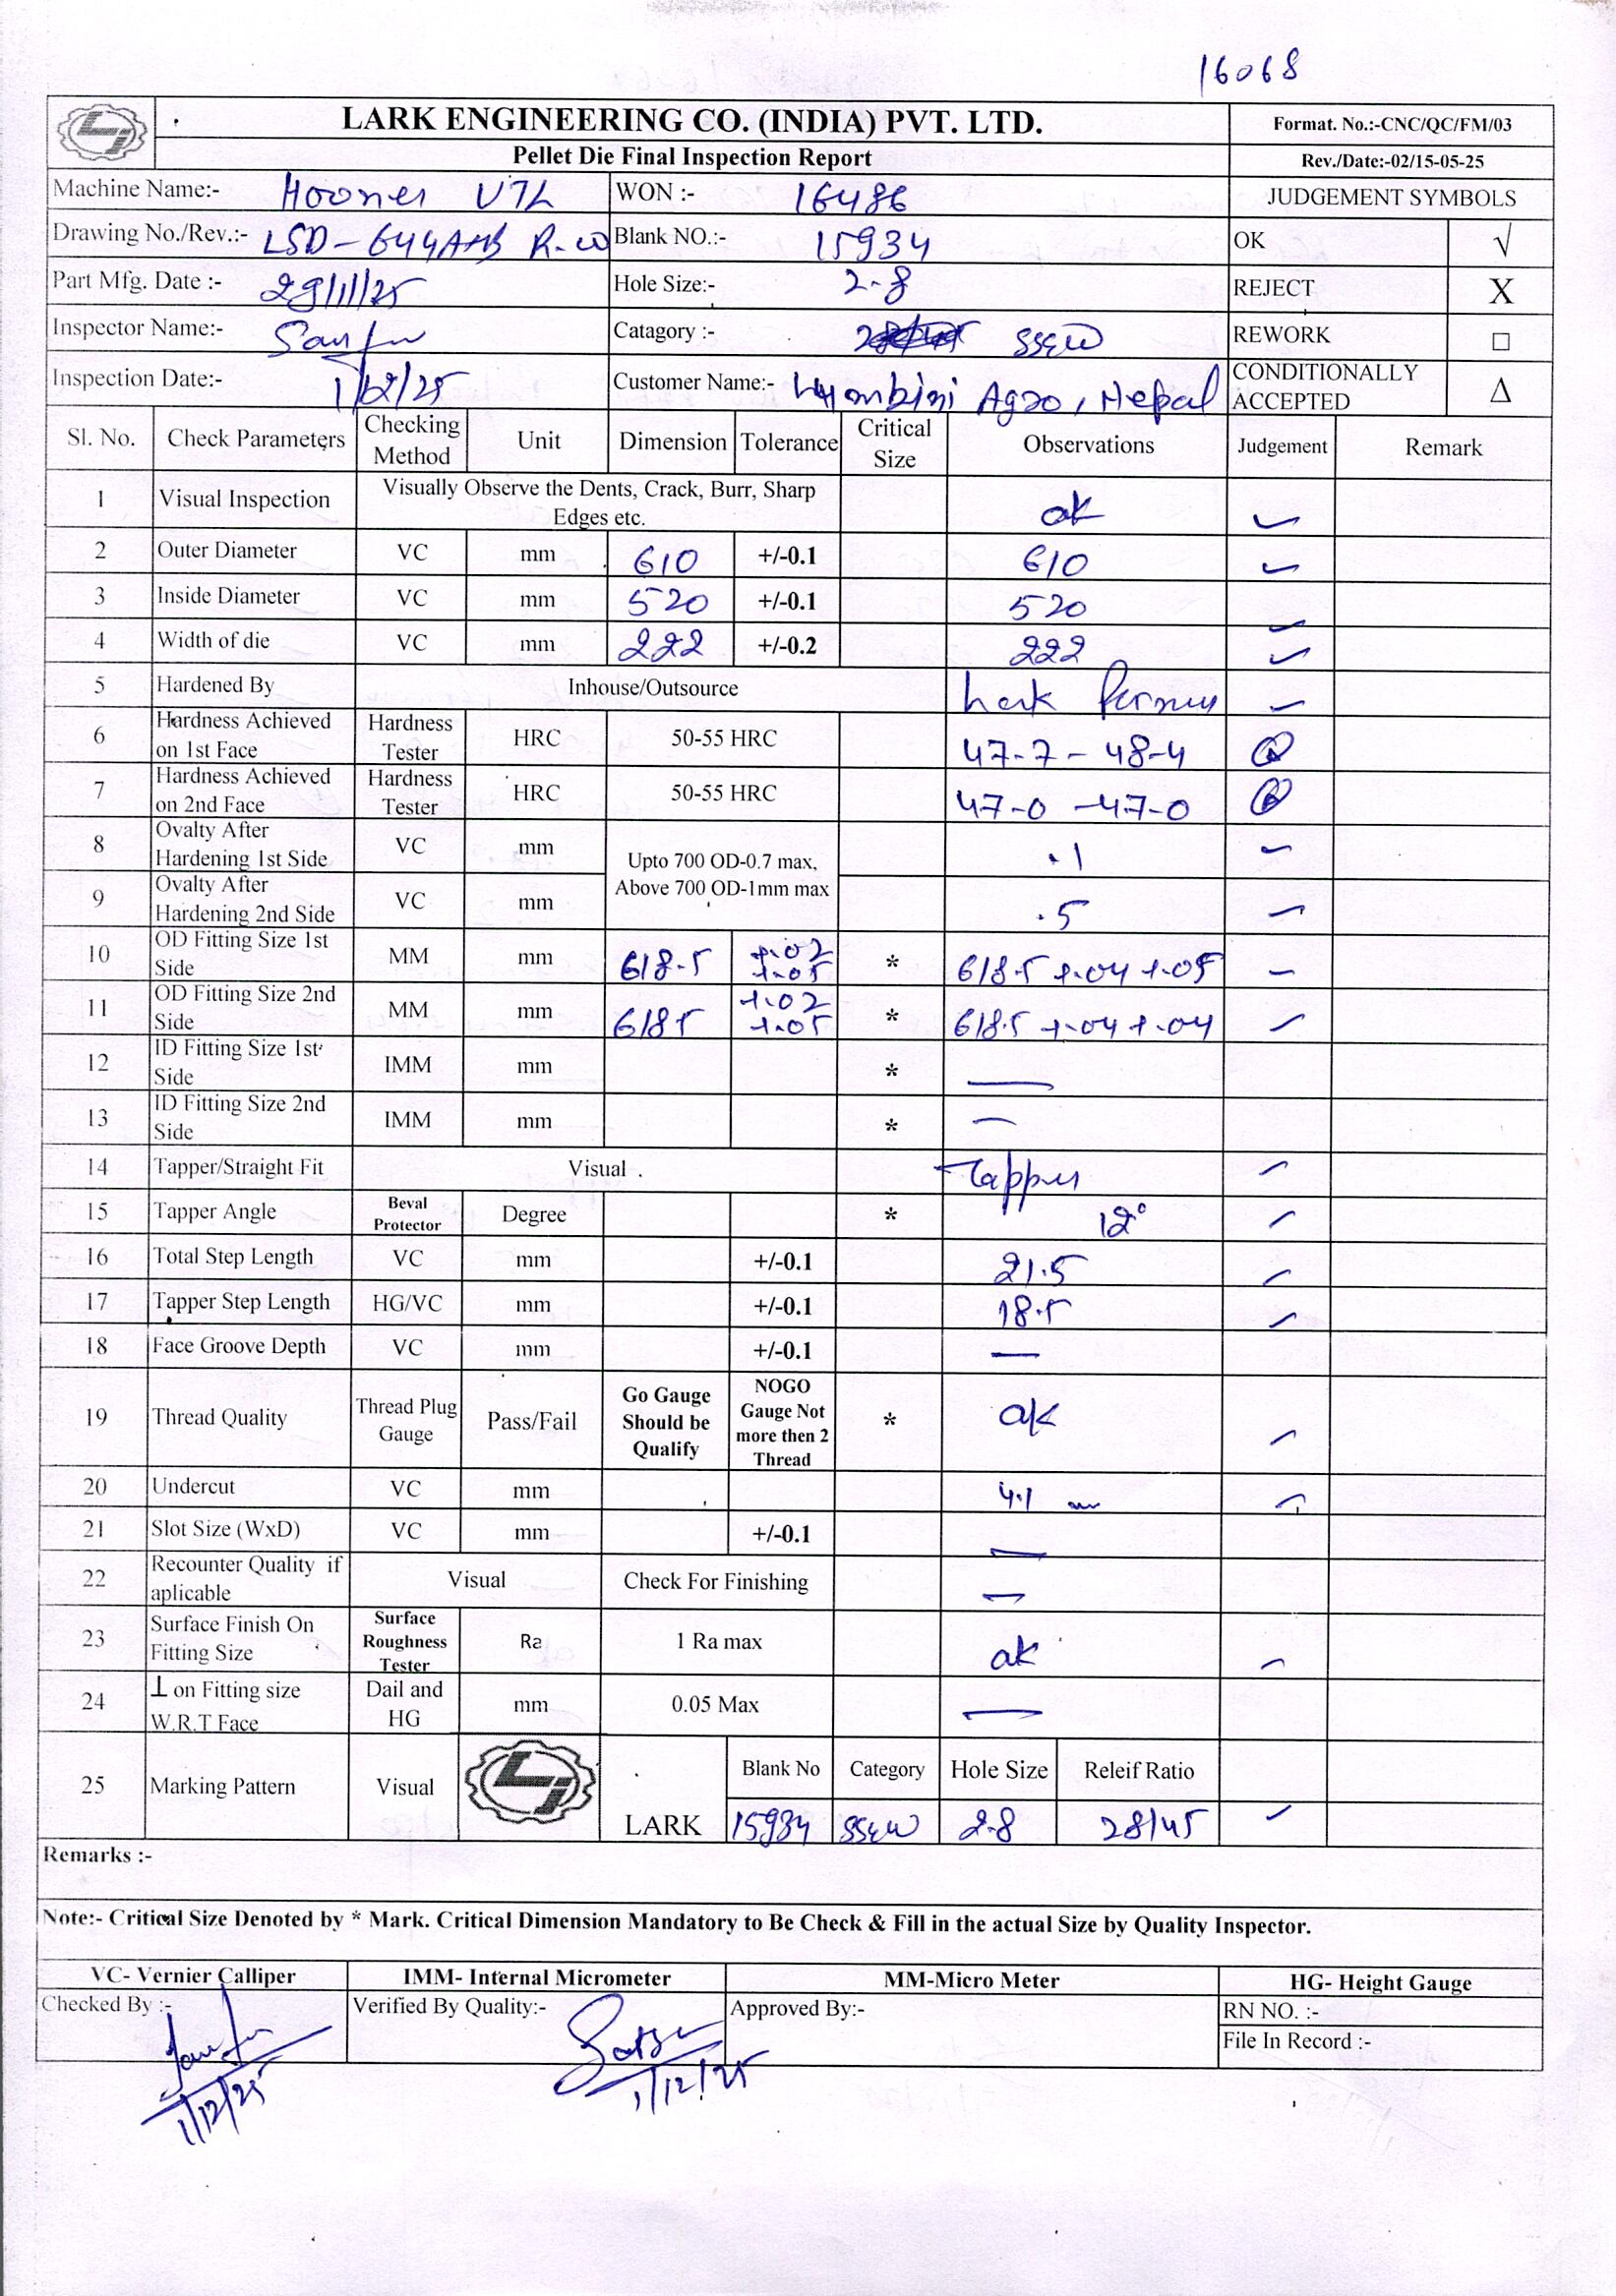 16068
LARK ENGINEERING CO. (INDIA) PVT. LTD. Format. No.:-CNC/QC/FM/03
Pellet Die Final Inspection Report Rev./Date:-02/15-05-25
Machine Name:- VTL WON :- 16486 JUDGEMENT SYMBOLS
Drawing No./Rev.:- LSD-644AHB Blank NO.:- 15934 OK √
Part Mfg. Date :- 29/11/25 Hole Size:- 2-8 REJECT X
Inspector Name:- Catagory :- SSEW REWORK □
Inspection Date:- 1/12/25 Customer Name:- Lumbini Agro, Nepal CONDITIONALLY ACCEPTED Δ
Sl. No. Check Parameters Checking Method Unit Dimension Tolerance Critical Size Observations Judgement Remark
1 Visual Inspection Visually Observe the Dents, Crack, Burr, Sharp Edges etc. ok
2 Outer Diameter VC mm 610 +/-0.1 610
3 Inside Diameter VC mm 520 +/-0.1 520
4 Width of die VC mm 222 +/-0.2 222
5 Hardened By Inhouse/Outsource Lark
6 Hardness Achieved on 1st Face Hardness Tester HRC 50-55 HRC 47-7 - 48-4
7 Hardness Achieved on 2nd Face Hardness Tester HRC 50-55 HRC 47-0 - 47-0
8 Ovalty After Hardening 1st Side VC mm Upto 700 OD-0.7 max, Above 700 OD-1mm max .1
9 Ovalty After Hardening 2nd Side VC mm .5
10 OD Fitting Size 1st Side MM mm 618.5 +.02 +.05 * 618.5 +.04 +.05
11 OD Fitting Size 2nd Side MM mm 618.5 +.02 +.05 * 618.5 +.04 +.04
12 ID Fitting Size 1st Side IMM mm * —
13 ID Fitting Size 2nd Side IMM mm * —
14 Tapper/Straight Fit Visual . Tapper
15 Tapper Angle Beval Protector Degree * 12°
16 Total Step Length VC mm +/-0.1 21.5
17 Tapper Step Length HG/VC mm +/-0.1 18.5
18 Face Groove Depth VC mm +/-0.1 —
19 Thread Quality Thread Plug Gauge Pass/Fail Go Gauge Should be Qualify NOGO Gauge Not more then 2 Thread * ok
20 Undercut VC mm 4.1
21 Slot Size (WxD) VC mm +/-0.1 —
22 Recounter Quality if aplicable Visual Check For Finishing —
23 Surface Finish On Fitting Size Surface Roughness Tester Ra 1 Ra max ok
24 ⊥ on Fitting size W.R.T Face Dail and HG mm 0.05 Max —
25 Marking Pattern Visual LARK Blank No Category Hole Size Releif Ratio
15934 SSEW 2.8 28/45
Remarks :-
Note:- Critical Size Denoted by * Mark. Critical Dimension Mandatory to Be Check & Fill in the actual Size by Quality Inspector.
VC- Vernier Calliper IMM- Internal Micrometer MM-Micro Meter HG- Height Gauge
Checked By :- Verified By Quality:- Approved By:- RN NO. :-
File In Record :-
1/12/25 1/12/25